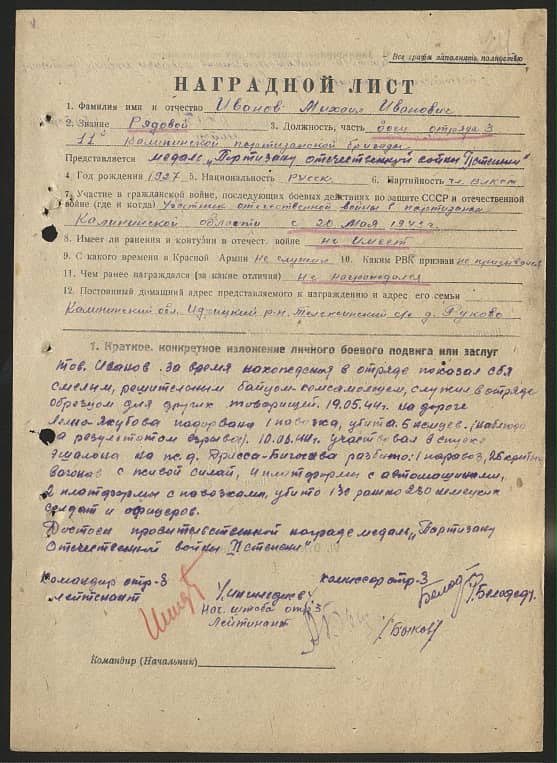 Все графы заполнять полностью
НАГРАДНОЙ ЛИСТ
1. Фамилия имя и отчество Иванов Михаил Иванович
2. Звание Рядовой 3. Должность, часть боец отряда 3
11ой Калининской партизанской бригады
Представляется медаль „Партизану отечественной войны II степени"
4. Год рождения 1927 5. Национальность русск 6. Партийность чл. ВЛКСМ
7. Участие в гражданской войне, последующих боевых действиях по защите СССР и отечественной
войне (где и когда) Участник отечественной войны в партизанах
Калининской области с 20 мая 1943г.
8. Имеет ли ранения и контузии в отечест. войне не имеет
9. С какого времени в Красной Армии не служил 10. Каким РВК призван не призывался
11. Чем ранее награждался (за какие отличия) Не награждался
12. Постоянный домашний адрес представляемого к награждению и адрес его семьи
Калининский обл. Идрицкий р-н. д. Руково
1. Краткое, конкретное изложение личного боевого подвига или заслуг
тов. Иванов за время нахождения в отряде показал себя
смелым, решительным байцом комсомольцем, служил в отряде
образцом для других товарищей. 19.05.44г. на дороге
подорвана 1 повозка, убита 6 немцев. (наблюдо
за результатом взрыва). 10.06.44г. участвовал в спуске
эшалона на ж.д. Дрисса- разбито: 1 паровоз, 26 крытых
вагонав с живой силай, 4 платформы с автомашинами,
2 платформы с повозками, убито 130 ранно 230 немецких
солдат и офицеров.
Достоен провительственной награде медаль „Партизану
Отечественный войны II степени"
Командир отр-3 комиссар отр-3
Лейтенант
Нач. штова отр 3
Лейтинант /Быков/
Командир (Начальник)